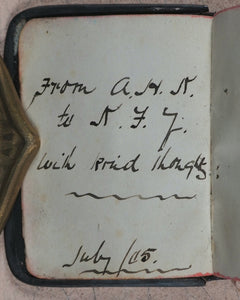 From A. H. K.
to K. F. Y.
With kind thoughts.
July /05.